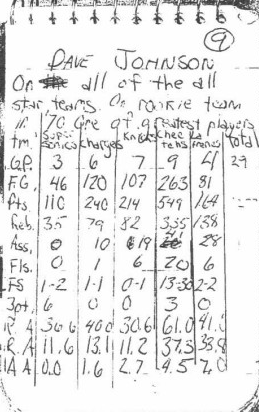 9
DAVE JOHNSON
On all of the all
star teams. On rookie team
in '70 One of greatest players
tm. Super Sonics Chargers Knicks Total
G.P. 3 6 7 9 4 29
F.G. 46 120 107 263 81
Pts 110 240 214 549 164
Reb. 35 79 82 335 138
Ass. 0 10 19 28
Fls. 0 1 6 20 6
FS 1-2 1-1 0-1 13-30 2-2
3pt. 6 0 0 3 0
P.A 36.6 40.0 30.6 61.0 41.0
R.A 11.6 13.1 11.2 37.3 33.8
A.A 0.0 1.6 2.7 4.5 7.0